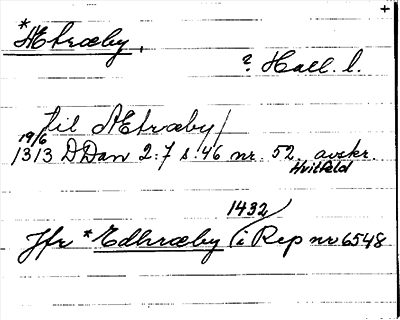 +
*AEtræby,
? Hall. l.
til AEtræby/
19/6
1313 DDan 2:7 s. 46 nr. 52 avskr.
Hvitfeld
1432/
Jfr *Edhræby (i Rep nr 6548